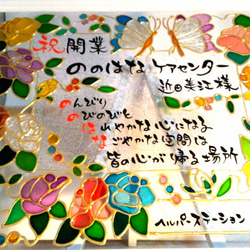 祝 開業
ののはなケアセンター
近田美江様
のんびり
のびのびと
はれやかな心になる
なごやかな空間は
皆の心が帰る場所
ヘルパーステーション